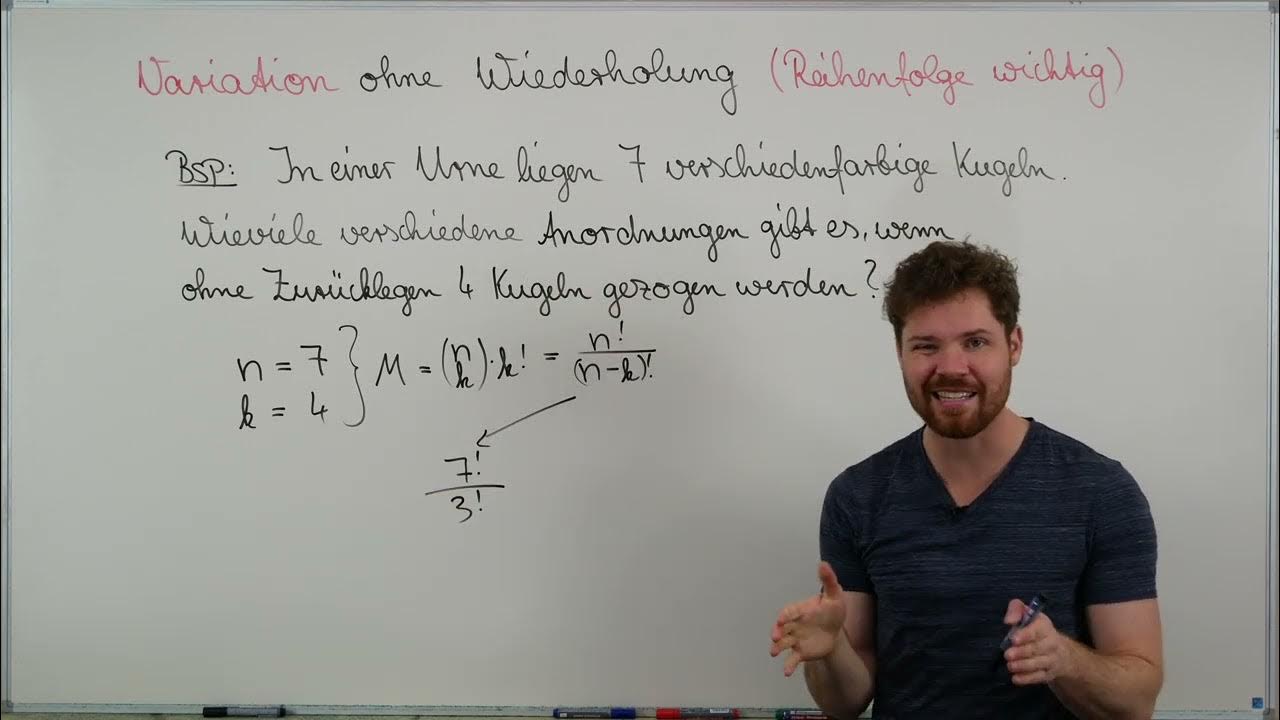 Variation ohne Wiederholung (Reihenfolge wichtig)
BSP: In einer Urne liegen 7 verschiedenfarbige Kugeln.
Wieviele verschiedene Anordnungen gibt es, wenn
ohne Zurücklegen 4 Kugeln gezogen werden?
n = 7
k = 4
} M = (n k) · k! = n! / (n-k)!
7! / 3!